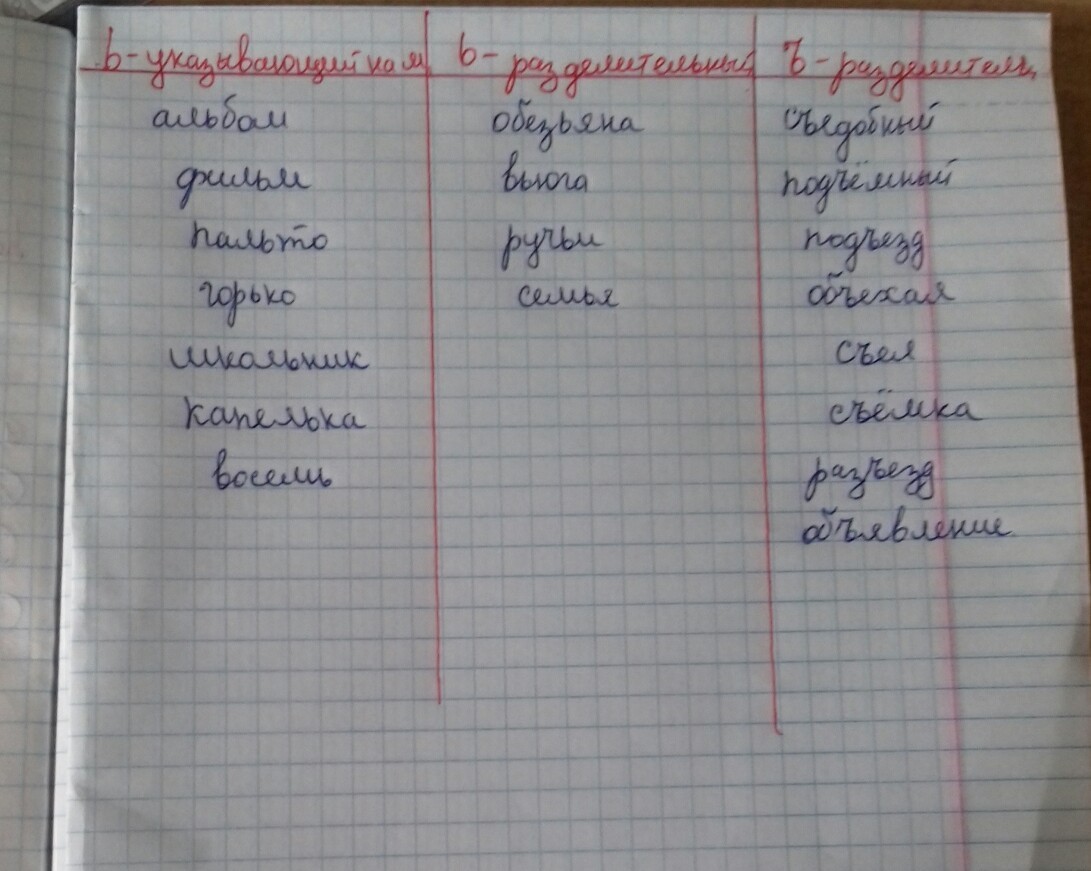 ь-указывающий на м ь-разделительный ъ-разделитель
альбом обезьяна съедобный
фильм вьюга подъёмный
пальто ручьи подъезд
горько семья объехал
школьник съел
капелька съёмка
восемь разъезд
объявление